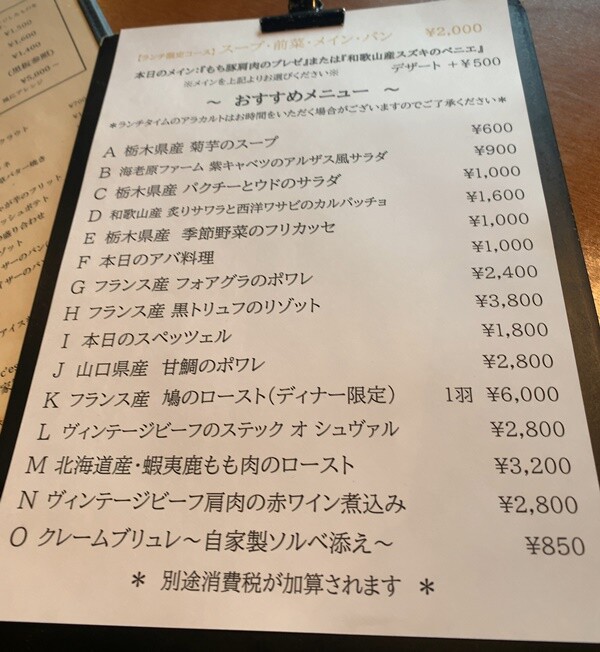 【ランチ限定コース】スープ・前菜・メイン・パン ¥2,000
本日のメイン:『もち豚肩肉のブレゼ』または『和歌山産スズキのベニエ』
※メインを上記よりお選びください※ デザート +¥500
～ おすすめメニュー ～
*ランチタイムのアラカルトはお時間をいただく場合がございますのでご了承ください*
A 栃木県産 菊芋のスープ ¥600
B 海老原ファーム 紫キャベツのアルザス風サラダ ¥900
C 栃木県産 パクチーとウドのサラダ ¥1,000
D 和歌山産 炙りサワラと西洋ワサビのカルパッチョ ¥1,600
E 栃木県産 季節野菜のフリカッセ ¥1,000
F 本日のアバ料理 ¥1,000
G フランス産 フォアグラのポワレ ¥2,400
H フランス産 黒トリュフのリゾット ¥3,800
I 本日のスペッツェル ¥1,800
J 山口県産 甘鯛のポワレ ¥2,800
K フランス産 鳩のロースト(ディナー限定) 1羽 ¥6,000
L ヴィンテージビーフのステック オ シュヴァル ¥2,800
M 北海道産・蝦夷鹿もも肉のロースト ¥3,200
N ヴィンテージビーフ肩肉の赤ワイン煮込み ¥2,800
O クレームブリュレ～自家製ソルベ添え～ ¥850
* 別途消費税が加算されます *
¥1,500
¥1,600
¥1,400
¥5,000～